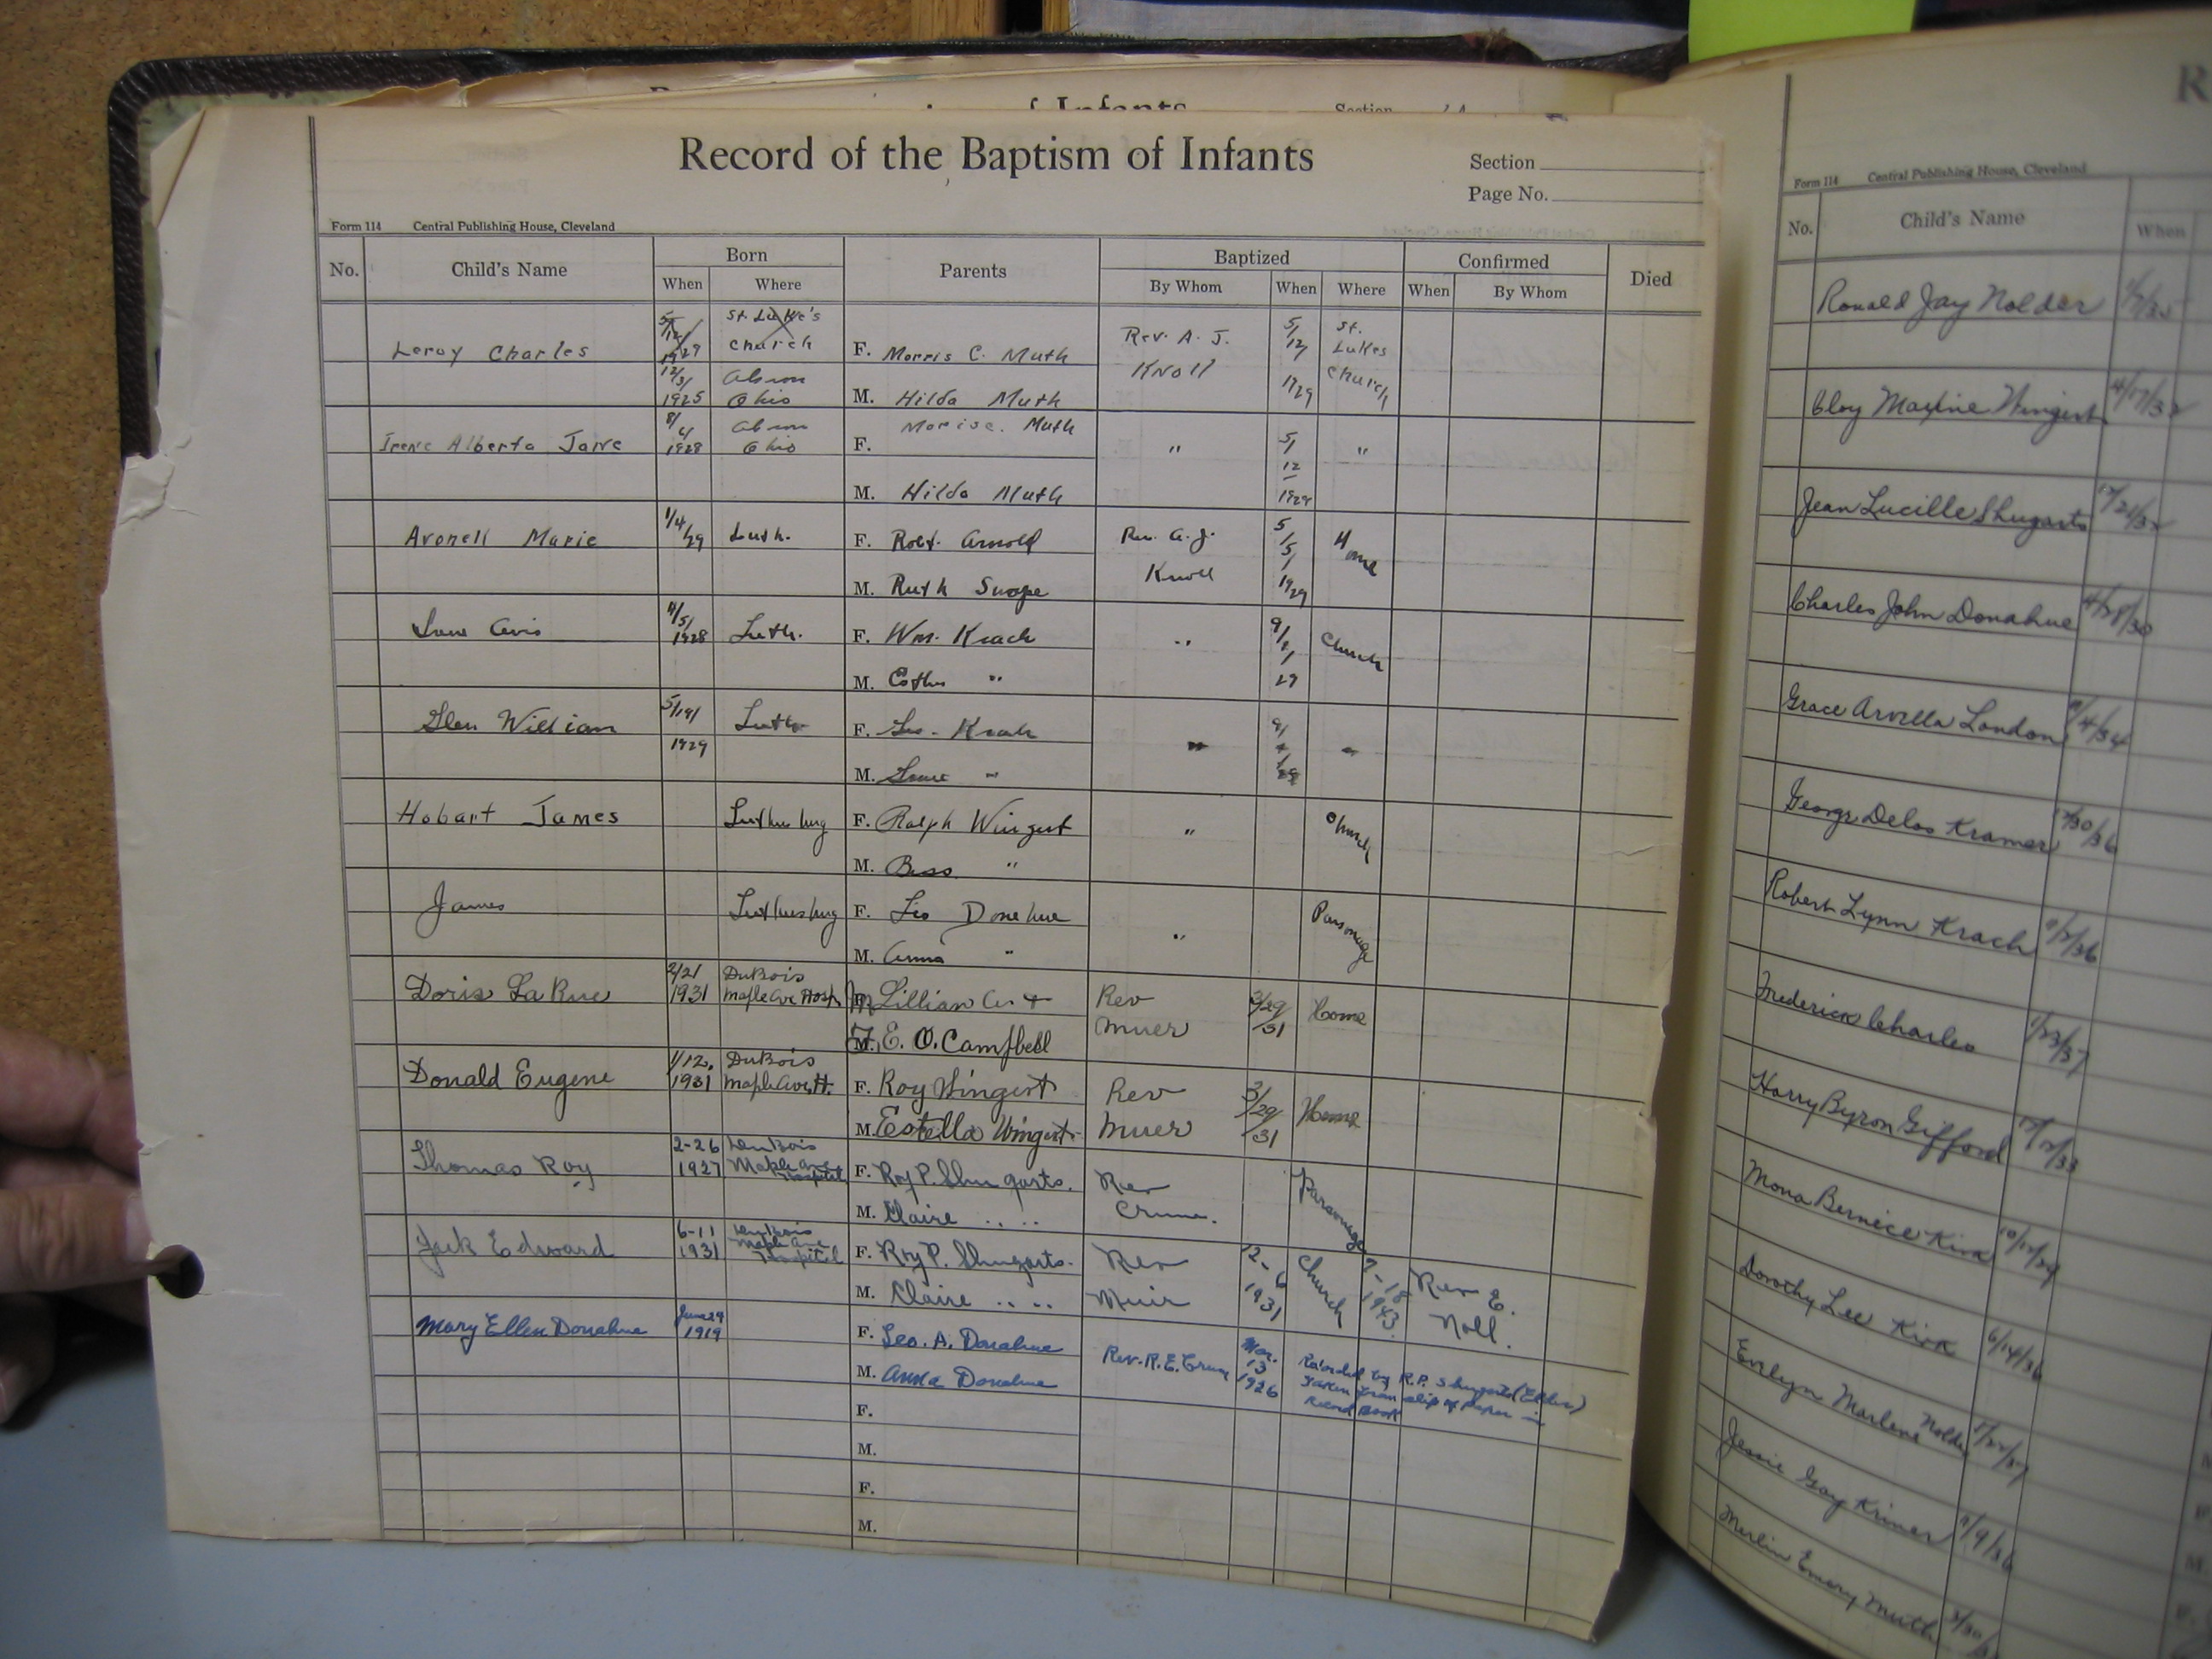 of Infants
Section
Record of the Baptism of Infants
Section
Page No.
Form 114 Central Publishing House, Cleveland
No. Child's Name Born When Where Parents Baptized By Whom When Where Confirmed When By Whom Died
Leroy Charles 5/12/1929 St. Luke's Church F. Morris C. Muth Rev. A. J. Knoll 5/12/1929 St. Lukes Church
12/3/1925 Ohio M. Hilda Muth
Irene Alberta Jane 8/4/1928 Ohio F. Moris c. Muth " 5/12 1929 "
M. Hilda Muth
Avonell Marie 1/4/29 Luth. F. Robt. Arnold Rev. A. J. Knoll 5/5/1929 Home
M. Ruth Swope
Avis 1928 Luth. F. Wm. Krach " Church
M. "
Glen William 5/19/1929 Luth F. Geo. Krach " "
M. "
Hobart James Luthersburg F. Ralph Wingert " Church
M. Bess "
James Luthersburg F. Leo Donehue " Parsonage
M. Anna "
Doris LaRue 2/21 1931 DuBois Maple Ave Hosp. M. Lillian & Rev Muer 3/29/31 Home
F. E. O. Campbell
Donald Eugene 1/12, 1931 DuBois Maple Ave. H. F. Roy Wingert Rev Muer 3/29/31 Home
M. Estella Wingert
Thomas Roy 2-26 1927 DuBois Maple Ave Hospital F. Roy P. Shugarts. Rev Crum. Parsonage
M. Claire " "
Jack Edward 6-11 1931 DuBois Maple Ave Hospital F. Roy P. Shugarts. Rev Muir 12-6 1931 Church 7-18 1943. Rev E. Noll.
M. Claire " "
Mary Ellen Donahue June 29 1919 F. Leo. A. Donahue Rev. R. E. Crum Mar. 13 1926 Recorded by R.P. Shugarts (Elder)
M. Anna Donahue taken from slip of paper in
Record Book
F.
M.
F.
M.
R
Form 114 Central Publishing House, Cleveland
No. Child's Name When
Ronald Jay Nolder
Cloy Maxine Wingert 4/17/32
Jean Lucille Shugarts
Charles John Donahue 4/28/30
Grace Arvella London
George Delos Kramer 12/30/36
Robert Lynn Krach
Frederick Charles 1/23/37
Harry Byron Gifford
Mona Bernice Kirk
Dorothy Lee Kirk 6/14/36
Evelyn Marlene Nolder
Jessie Gay Kriner
Merlin Emery Muth